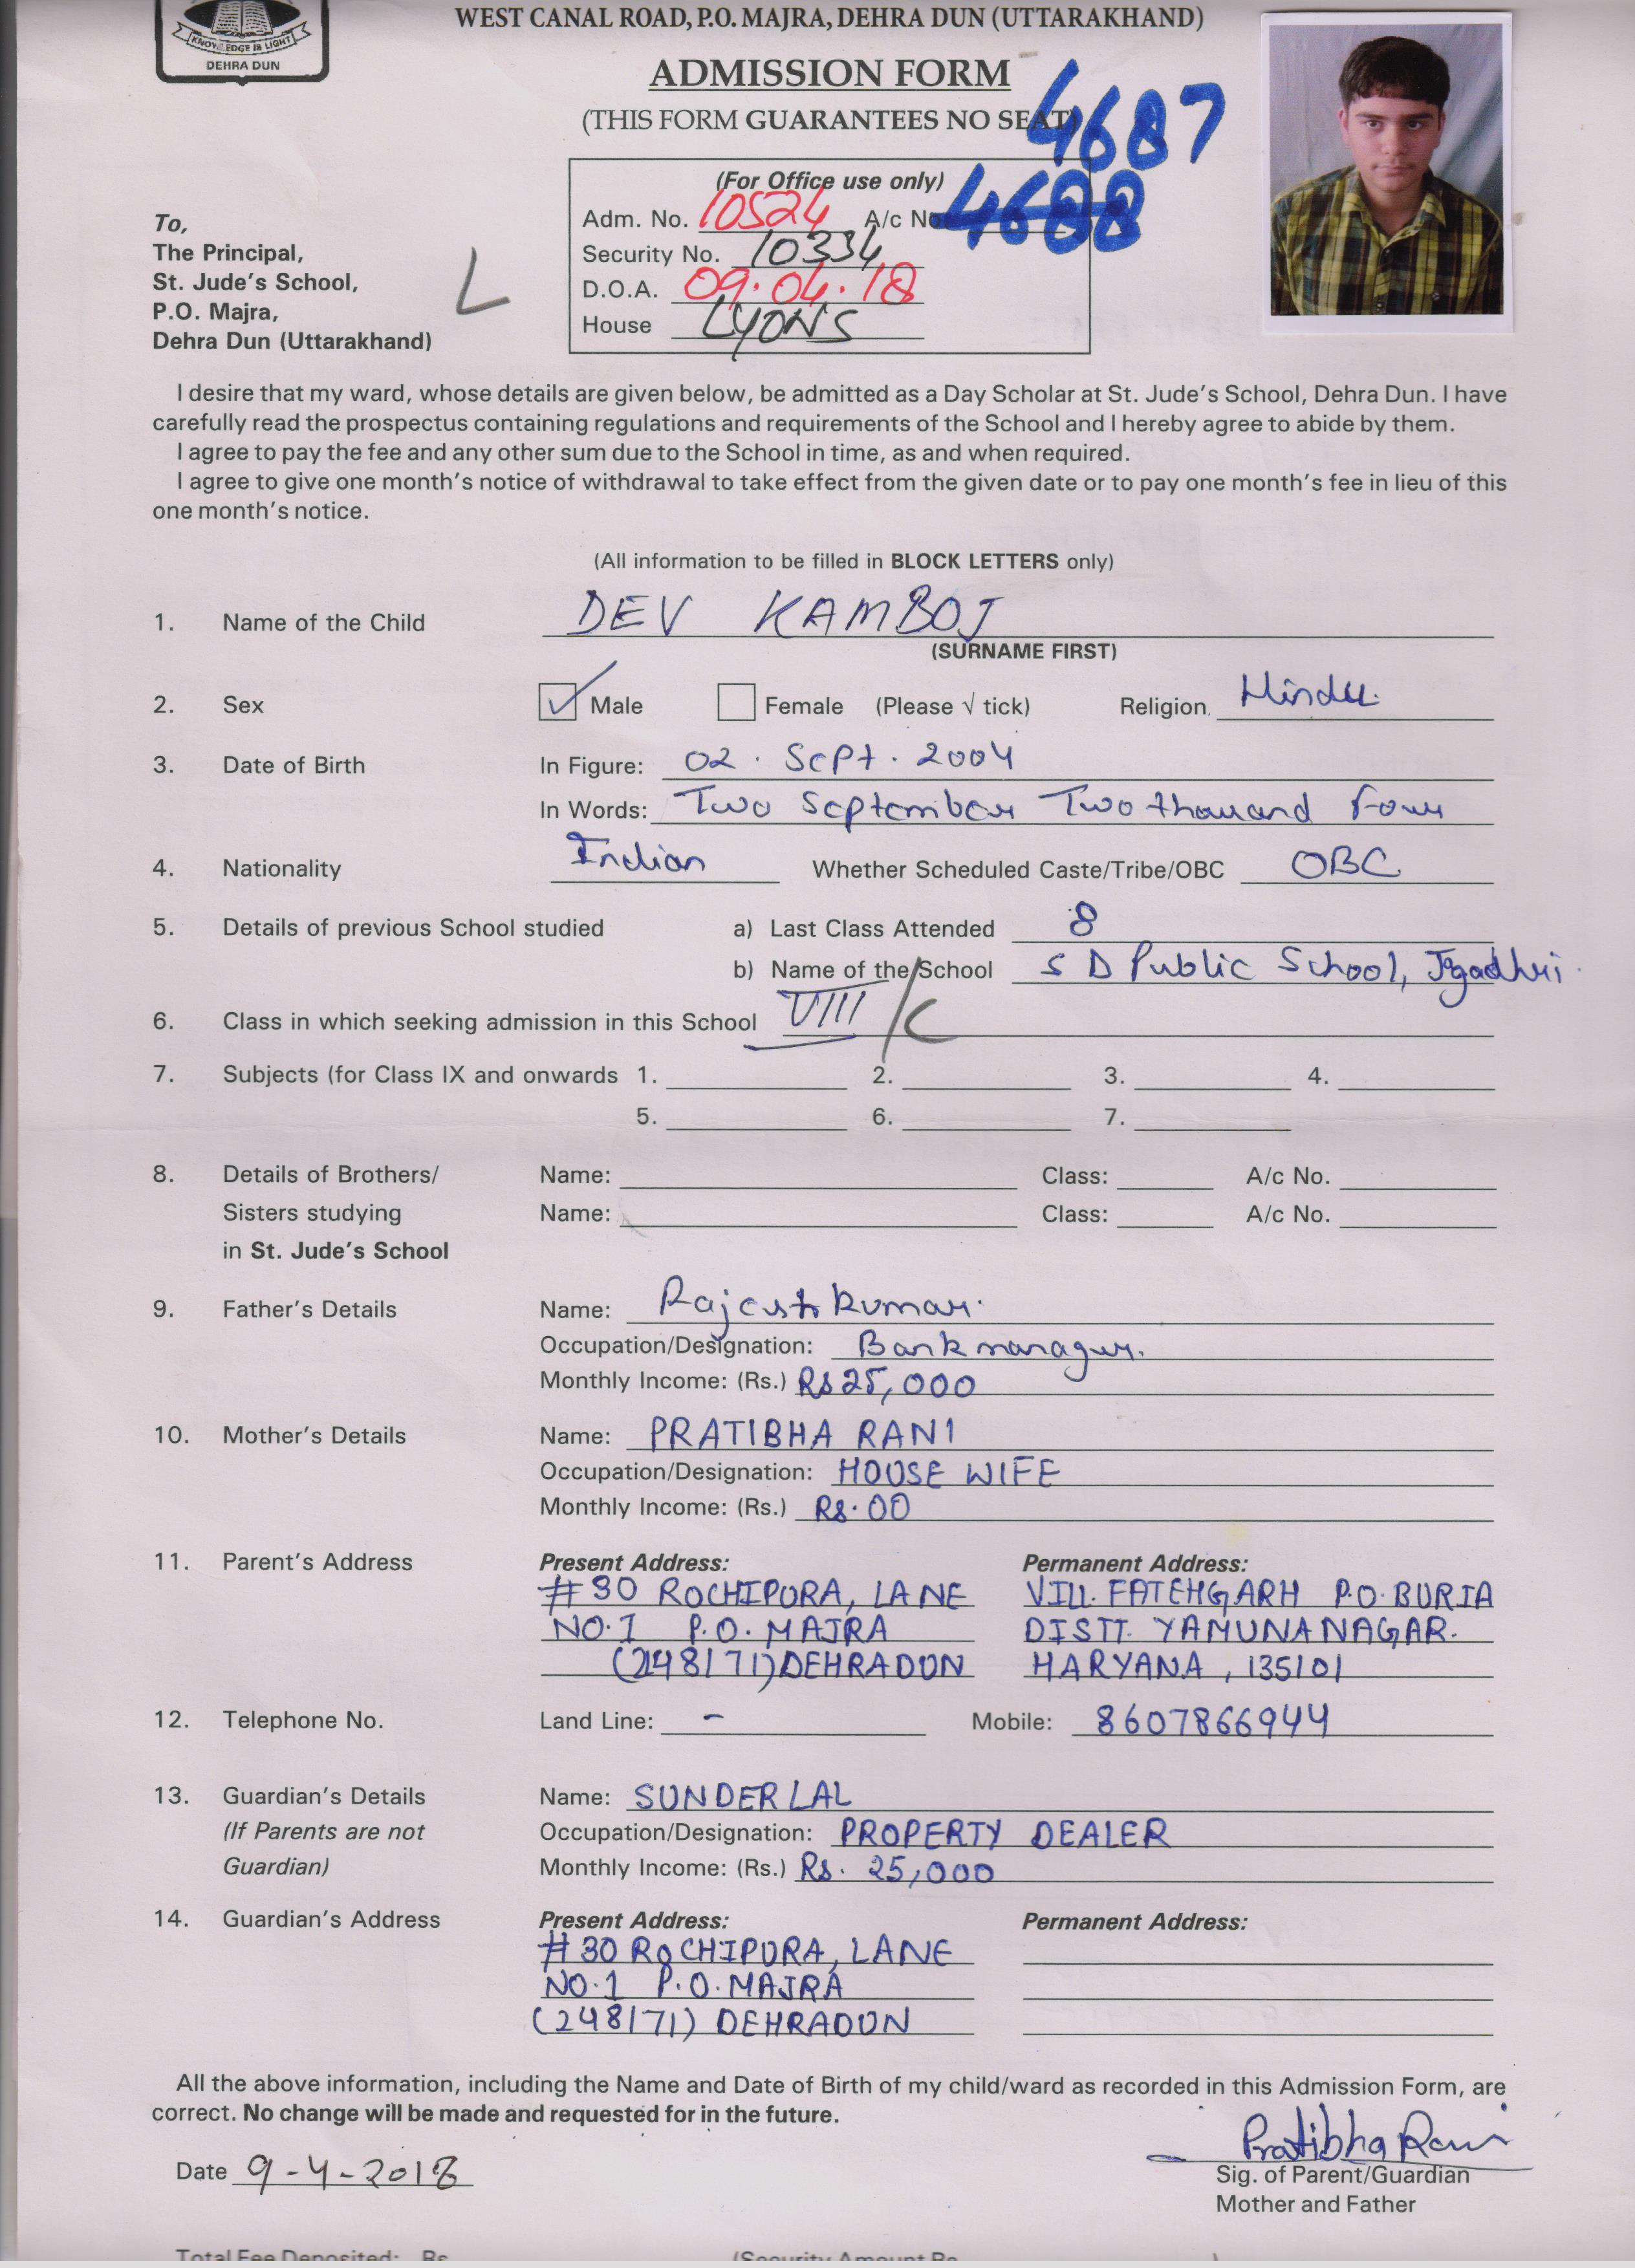 WEST CANAL ROAD, P.O. MAJRA, DEHRA DUN (UTTARAKHAND)
KNOWLEDGE IS LIGHT
DEHRA DUN
ADMISSION FORM
(THIS FORM GUARANTEES NO SEAT)
4687
(For Office use only)
Adm. No. 10524 A/c No 4688
Security No. 10334
D.O.A. 09.04.18
House LYONS
To,
The Principal,
St. Jude's School,
P.O. Majra,
Dehra Dun (Uttarakhand)
L
I desire that my ward, whose details are given below, be admitted as a Day Scholar at St. Jude's School, Dehra Dun. I have
carefully read the prospectus containing regulations and requirements of the School and I hereby agree to abide by them.
I agree to pay the fee and any other sum due to the School in time, as and when required.
I agree to give one month's notice of withdrawal to take effect from the given date or to pay one month's fee in lieu of this
one month's notice.
(All information to be filled in BLOCK LETTERS only)
1. Name of the Child DEV KAMBOJ
(SURNAME FIRST)
2. Sex ✓ Male Female (Please √ tick) Religion Hindu.
3. Date of Birth In Figure: 02 . Sept . 2004
In Words: Two September Two thousand Four
4. Nationality Indian Whether Scheduled Caste/Tribe/OBC OBC
5. Details of previous School studied a) Last Class Attended 8
b) Name of the School S D Public School, Jgadhri
6. Class in which seeking admission in this School VIII /C
7. Subjects (for Class IX and onwards 1. 2. 3. 4.
5. 6. 7.
8. Details of Brothers/ Name: Class: A/c No.
Sisters studying Name: Class: A/c No.
in St. Jude's School
9. Father's Details Name: Rajesh Kumar.
Occupation/Designation: Bank manager.
Monthly Income: (Rs.) Rs 25,000
10. Mother's Details Name: PRATIBHA RANI
Occupation/Designation: HOUSE WIFE
Monthly Income: (Rs.) Rs. 00
11. Parent's Address Present Address: Permanent Address:
# 30 ROCHIPURA, LANE VILL. FATEHGARH P.O. BURIA
NO. 1 P.O. MAJRA DISTT. YAMUNANAGAR.
(248171) DEHRADUN HARYANA , 135101
12. Telephone No. Land Line: - Mobile: 8607866944
13. Guardian's Details Name: SUNDER LAL
(If Parents are not Occupation/Designation: PROPERTY DEALER
Guardian) Monthly Income: (Rs.) Rs. 25,000
14. Guardian's Address Present Address: Permanent Address:
# 30 ROCHIPURA, LANE
NO. 1 P.O. MAJRA
(248171) DEHRADUN
All the above information, including the Name and Date of Birth of my child/ward as recorded in this Admission Form, are
correct. No change will be made and requested for in the future.
Pratibha Rani
Date 9-4-2018 Sig. of Parent/Guardian
Mother and Father
Total Fee Deposited: Rs (Security Amount Rs )